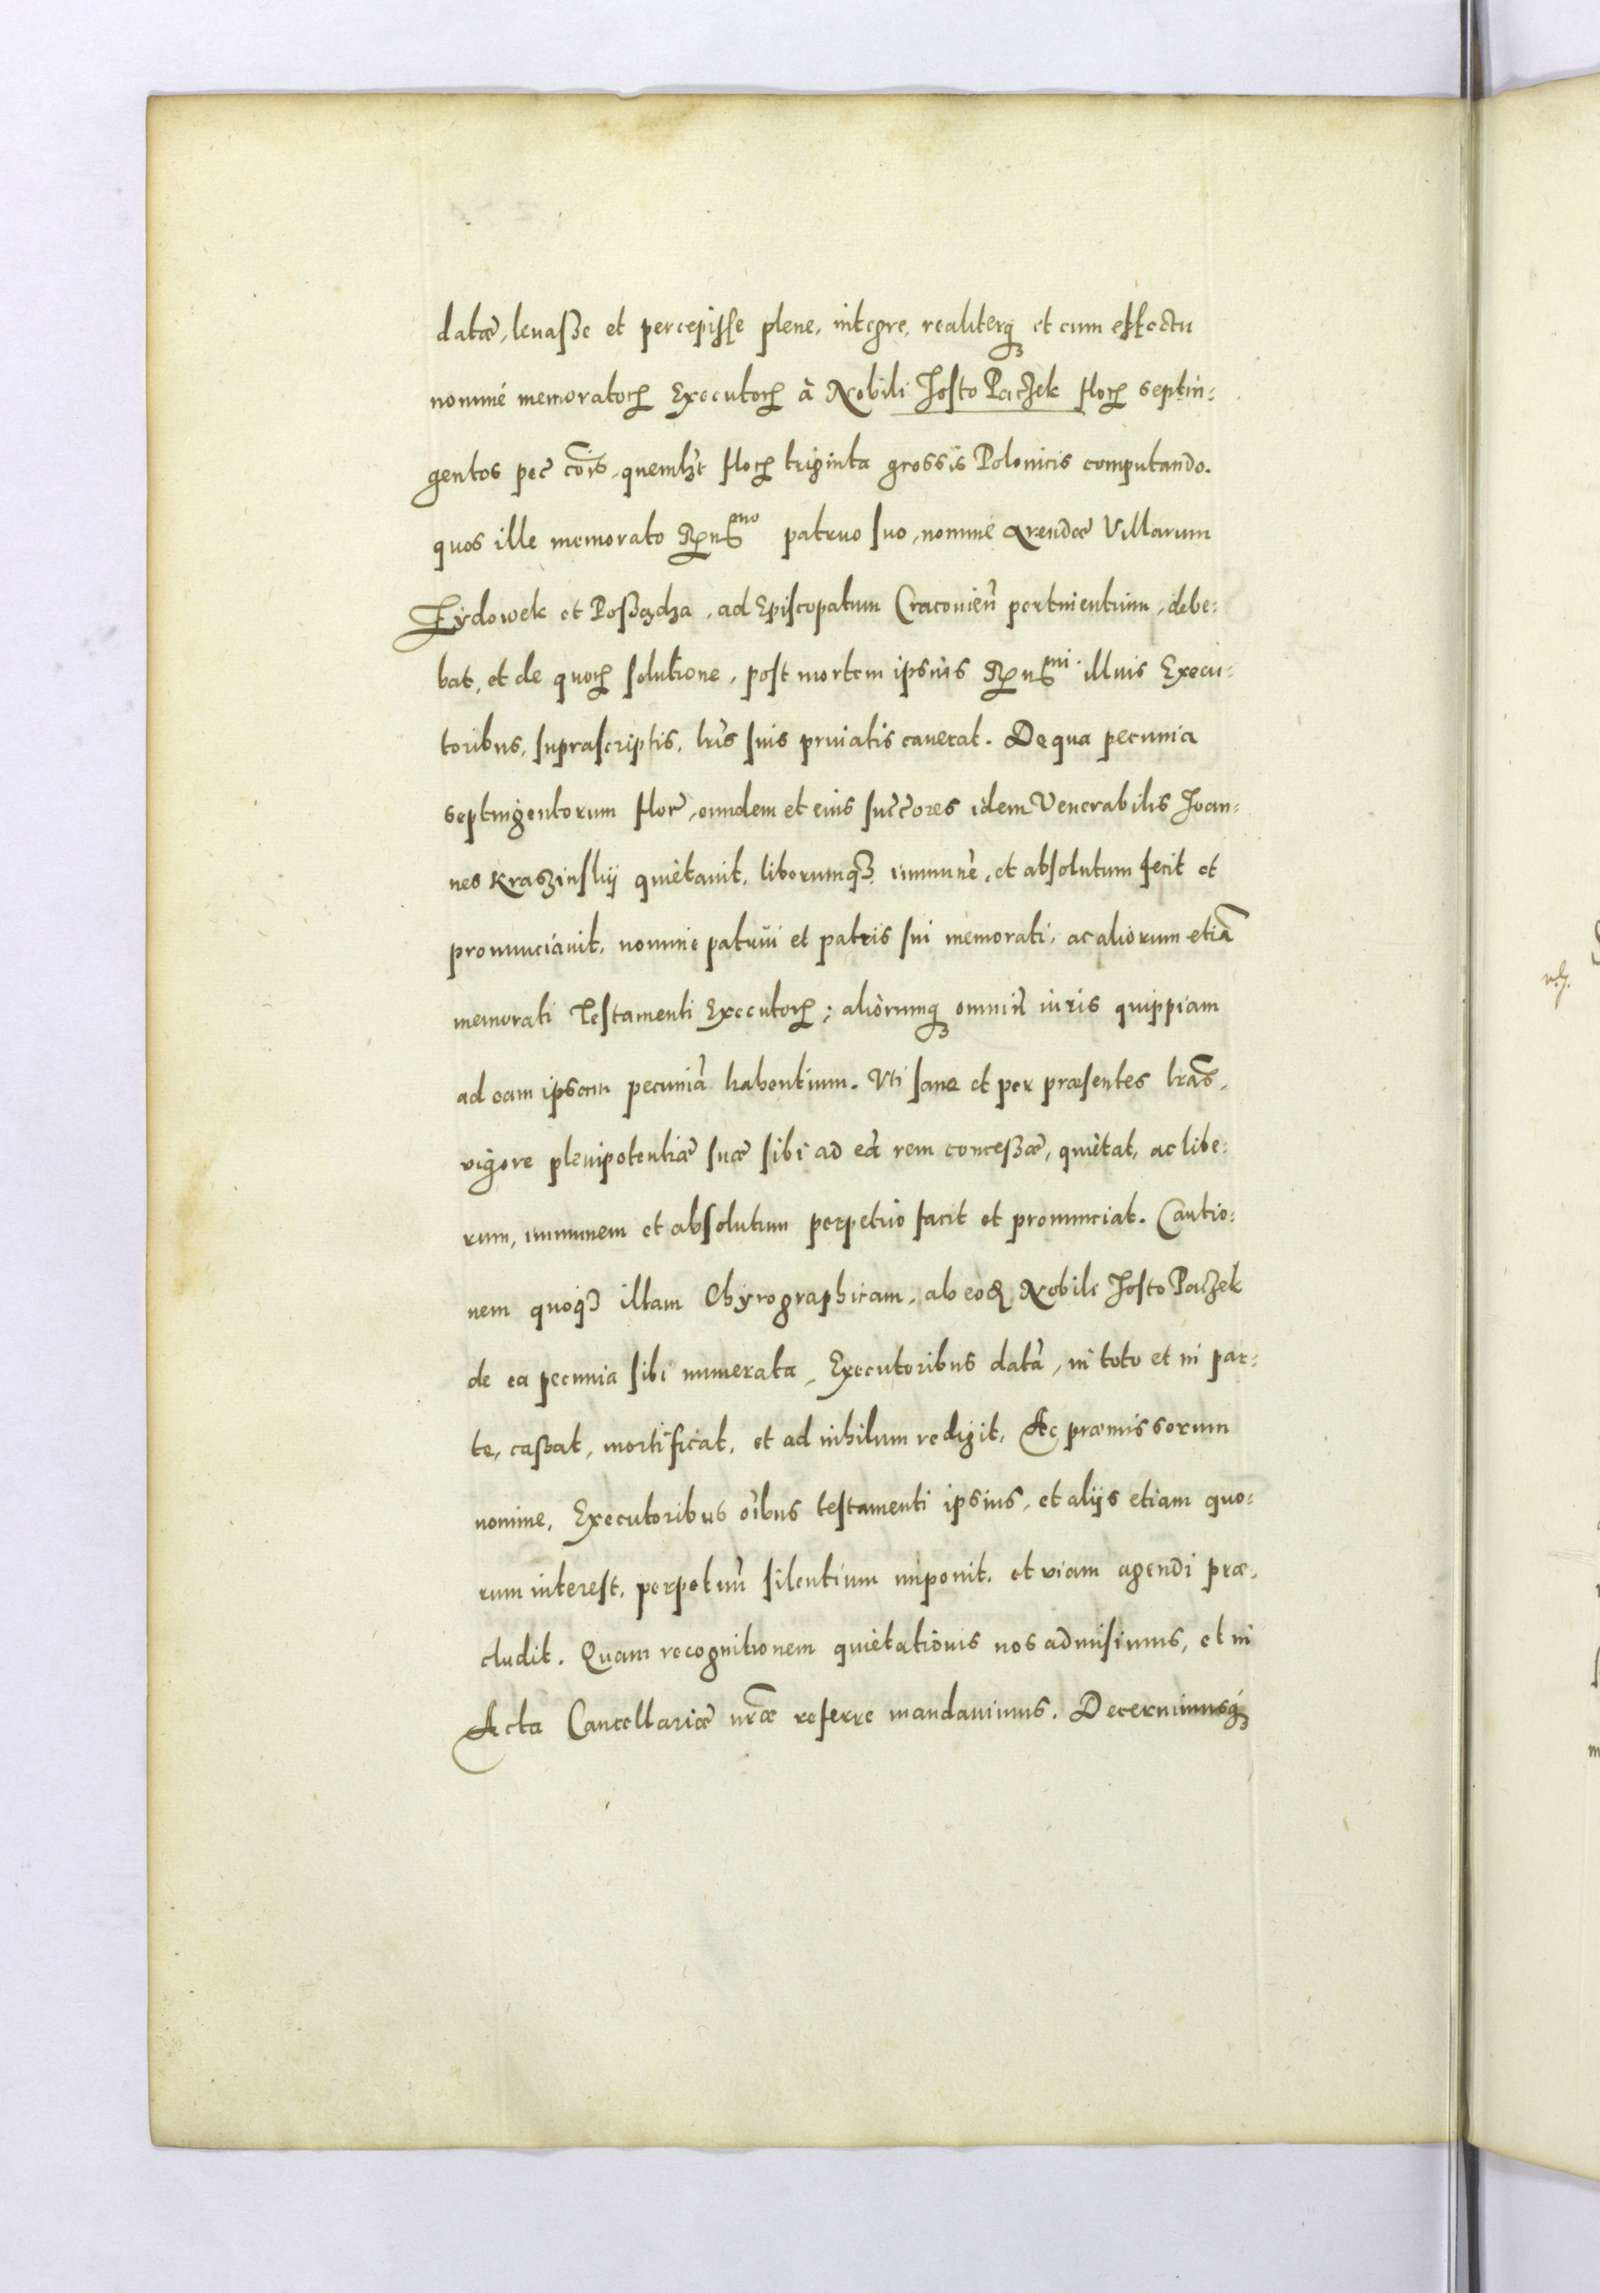 datæ, levasse et percepisse plene, integre, realiterq; et cum effectu
nomine memoratoꝝ Executoꝝ à Nobili Josto Paczek floꝝ septin-
gentos pec coīs, quemlꝫt floꝝ triginta grossis Polonicis computando.
quos ille memorato Rꝑn mo patruo suo, nomine Arendæ Villarum
Zydowek et Possądza, ad Episcopatum Cracovień pertinentium, debe-
bat, et de quoꝝ solutione, post mortem ipsius Rꝑn mi illius Execu-
toribus, suprascriptis, lrīs suis privatis caverat. De qua pecunia
septingentorum flor, eundem et eius succores idem Venerabilis Joan-
nes Kraszinskij quietavit, liberumqꝫ, immunē, et absolutum fecit et
pronunciavit, nomine patrui et patris sui memorati, ac aliorum etiā
memorati Testamenti Executoꝝ; aliorumq; omniū iuris quippiam
ad eam ipsam pecuniā habentium. Uti sane et per præsentes lrās,
vigore plenipotentiæ suæ sibi ad eā rem concessæ, quietat, ac libe-
rum, immunem et absolutum perpetuo facit et pronunciat. Cautio-
nem quoqꝫ illam Chyrographicam, ab eoꝗ Nobile Josto Paczek
de ea pecunia sibi numerata, Executoribus datā, in toto et in par-
te, cassat, mortificat, et ad nihilum redigit. Ac præmissorum
nomine, Executoribus oībus testamenti ipsius, et alijs etiam quo-
rum interest, perpetuū silentium imponit, et viam agendi præ-
cludit. Quam recognitionem quietationis nos admisimus, et in
Acta Cancellariæ nræ referre mandavimus. Decernimusq;